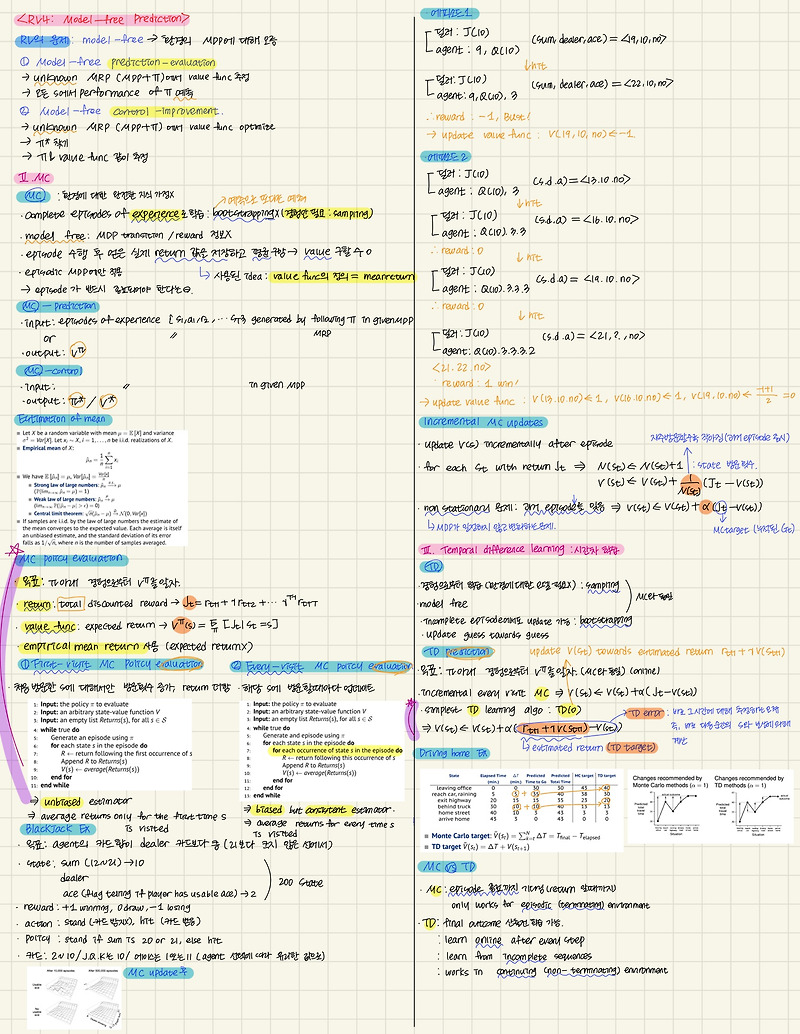 <RV4: Model-free Prediction>
RL의 문제: model-free → 환경의 MDP에 대해 모름
① Model-free prediction-evaluation
→ unknown MRP (MDP+π)에서 value func 추정
→ 모든 s에서 performance of π 예측
② Model-free control-improvement.
→ unknown MRP (MDP+π)에서 value func optimize
→ π* 찾기
→ π와 value func 같이 추정
II. MC
MC : 환경에 대한 완전한 지식 가정X
· complete episodes of experience로 학습: bootstrapping X (경험만 필요: sampling)
· model free: MDP transition / reward 정보X
· episode 수행 후 얻은 실제 return 값을 저장하고 평균 구함 → value 구할 수 O
· episodic MDP에만 적용
↳ 사용된 idea: value func의 정의 = mean return
→ episode가 반드시 종료되어야 한다는 것.
MC - prediction
· input: episodes of experience {s1,a1,r2, ... ST} generated by following π in given MDP
or 〃 MRP
· output: Vπ
MC - control
· input: 〃 in given MDP
· output: π* / V*
Estimation of mean
Let X be a random variable with mean μ = E[X] and variance
σ² = Var[X]. Let xᵢ ~ X, i = 1, . . . , n be i.i.d. realizations of X.
Empirical mean of X:
We have E[μ̂ₙ] = μ, Var[μ̂ₙ] = Var[X]/n
Strong law of large numbers: μ̂ₙ → μ
(P(limₙ→∞ μ̂ₙ = μ) = 1)
Weak law of large numbers: μ̂ₙ → μ
(limₙ→∞ P(|μ̂ₙ − μ| > ε) = 0)
Central limit theorem: √n(μ̂ₙ − μ) → N(0, Var[x])
If samples are i.i.d. by the law of large numbers the estimate of
the mean converges to the expected value. Each average is itself
an unbiased estimate, and the standard deviation of its error
falls as 1/√n, where n is the number of samples averaged.
MC policy evaluation
· 목표: π아래 경험으로부터 Vπ를 학습.
· return: total discounted reward → Jt = rt+1 + γrt+2 + ...
· value func: expected return → Vπ(s) = E [Jt | st = s]
· empirical mean return 사용 (expected return X)
① First-visit MC policy evaluation
1: Input: the policy π to evaluate
2: Input: an arbitrary state-value function V
3: Input: an empty list Returns(s), for all s ∈ S
4: while true do
5: Generate an episode using π
6: for each state s in the episode do
7: R ← return following the first occurrence of s
8: Append R to Returns(s)
9: V(s) ← average(Returns(s))
10: end for
11: end while
⇒ unbiased estimator
→ average returns only for the first time s
is visited
② Every-visit MC policy evaluation
1: Input: the policy π to evaluate
2: Input: an arbitrary state-value function V
3: Input: an empty list Returns(s), for all s ∈ S
4: while true do
5: Generate an episode using π
6: for each state s in the episode do
7: for each occurrence of state s in the episode do
8: R ← return following this occurrence of s
9: Append R to Returns(s)
10: V(s) ← average(Returns(s))
11: end for
12: end for
13: end while
⇒ biased but consistent estimator.
→ average returns for every time s
is visited
BlackJack Ex
· 목표: agent의 카드 합이 dealer 카드보다
· state: sum (12~21) → 10
dealer
ace (flag telling if player has usable ace) → 2
200 state
· reward: +1 winning, 0 draw, -1 losing
· action: stand (카드 받X), hit (카드 받음)
· policy: stand if sum is 20 or 21, else hit
MC update 후
After 10,000 episodes
After 500,000 episodes
에피소드 1
딜러: J(10)
agent: 9, Q(10)
(sum, dealer, ace) = <19, 10, no>
↓ hit
딜러: J(10)
agent: 9, Q(10), 3
(sum, dealer, ace) = <22, 10, no>
∴ reward: -1, Bust!
→ update value func : V(19, 10, no) ← -1.
에피소드 2
딜러: J(10)
agent: Q(10), 3
(s.d.a) = <13.10.no>
↓ hit
딜러: J(10)
agent: Q(10).3.3
(s.d.a) = <16.10.no>
∴ reward: 0
↓ hit
딜러: J(10)
agent: Q(10).3.3.3
(s.d.a) = <19.10.no>
∴ reward: 0
↓ hit
딜러: J(10)
agent: Q(10).3.3.3.2
(s.d.a) = <21, ?, no>
<21.22.no>
∴ reward: 1 win!
→ update value func : V(13.10.no) ← 1, V(16.10.no) ← 1, V(19,10.no) ← -1+1/2 = 0
Incremental MC updates
· update V(s) incrementally after episode
· for each st with return Jt ⇒ N(st) ← N(st)+1 : state 방문 횟수.
V(st) ← V(st) + 1/N(st) (Jt − V(st))
· non stationary 문제: 과거 episode를 잊음 ⇒ V(st) ← V(st) + α(Jt − V(st))
MC target
III. Temporal difference learning : 시간차 학습
TD
: sampling
· model free
· incomplete episode에도 update 가능 : bootstrapping
· update guess towards guess
MC와 동일
TD prediction
update V(st) towards estimated return rt+1 + γV(st+1)
· 목표: π아래 경험으로부터 Vπ를 학습. (MC와 동일) (online)
· Incremental every visit MC ⇒ V(st) ← V(st) + α(Jt − V(st))
· simplest TD learning algo : TD(0)
⇒ V(st) ← V(st) + α(rt+1 + γV(st+1) − V(st))
TD error
↳ estimated return (TD target)
Driving home Ex
State Elapsed Time (min) ΔT (min) Predicted Time to Go Predicted Total Time MC target TD target
leaving office 0 0 30 30 43 40
reach car, raining 5 5 35 40 38 30
exit highway 20 15 15 35 23 20
behind truck 30 10 10 40 13 13
home street 40 10 3 43 3 3
arrive home 43 3 0 43 0 0
Monte Carlo target: V̂(sₜ) = Σ ΔT = T_final − T_elapsed
TD target V̂(sₜ) = ΔT + V(sₜ₊₁)
Changes recommended by
Monte Carlo methods (α = 1)
Changes recommended
by TD methods (α = 1)
Situation
Situation
MC vs TD
· MC: episode 종료까지 기다림 (return 알때까지)
only works for episodic (terminating) environment
· TD: final outcome 상관없이 학습 가능.
: learn online after every step
: learn from incomplete sequences
: works in continuing (non-terminating) environment